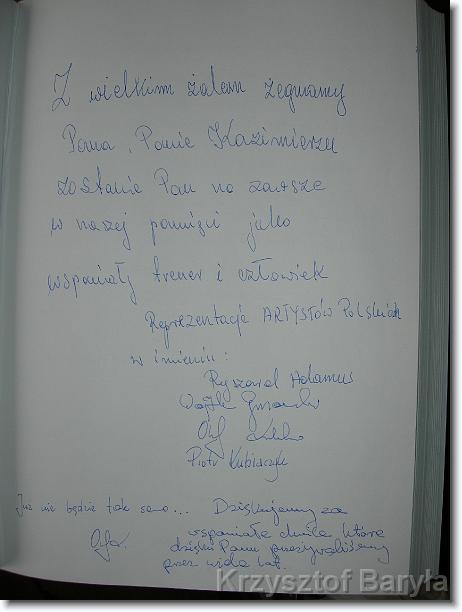 Z wielkim żalem żegnamy
Pana, Panie Kazimierzu
zostanie Pan na zawsze
w naszej pamięci jako
wspaniały trener i człowiek
Reprezentacje ARTYSTÓW Polskich
w imieniu:
Ryszard Adamus
Wojtek
Piotr Kubiaczyk
Już nie będzie tak samo... Dziękujemy za
wspaniałe chwile które
dzięki Panu przeżywaliśmy
przez wiele lat.
Krzysztof Baryła